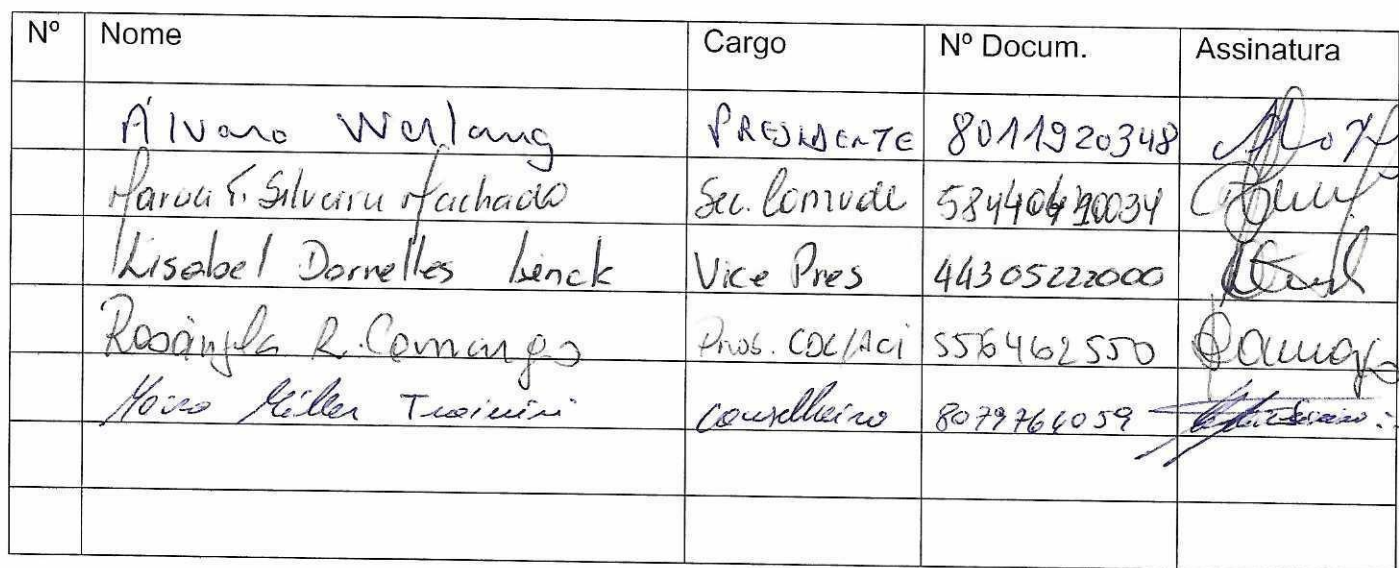 Nº Nome Cargo Nº Docum. Assinatura
Álvaro Werlang PRESIDENTE 8011920348
F. Silveira Machado Sec. Comude
Lisabel Dornelles Linck Vice Pres 44305222000
Rosângela R. Camargo CDC/ACI 556462550 Camargo
Müller Trainini Conselheiro 8079764059